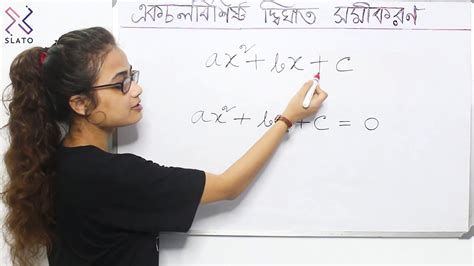 SLATO
একচলকবিশিষ্ট দ্বিঘাত সমীকরণ
ax² + bx + c
ax² + bx + c = 0